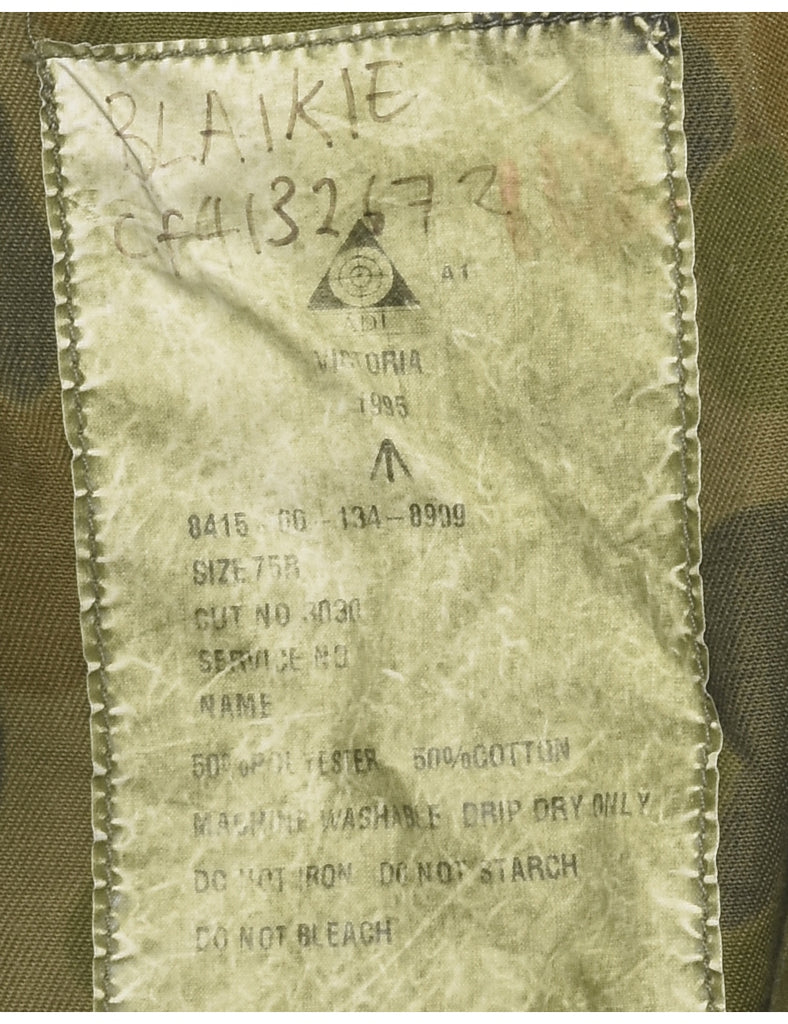 BLAIKIE
CF4132672
A1
ADI
VICTORIA
1995
8415-00-134-8909
SIZE 75R
CUT NO 3030
SERVICE NO
NAME
50%POLYESTER 50%COTTON
MACHINE WASHABLE DRIP DRY ONLY
DO NOT IRON DO NOT STARCH
DO NOT BLEACH